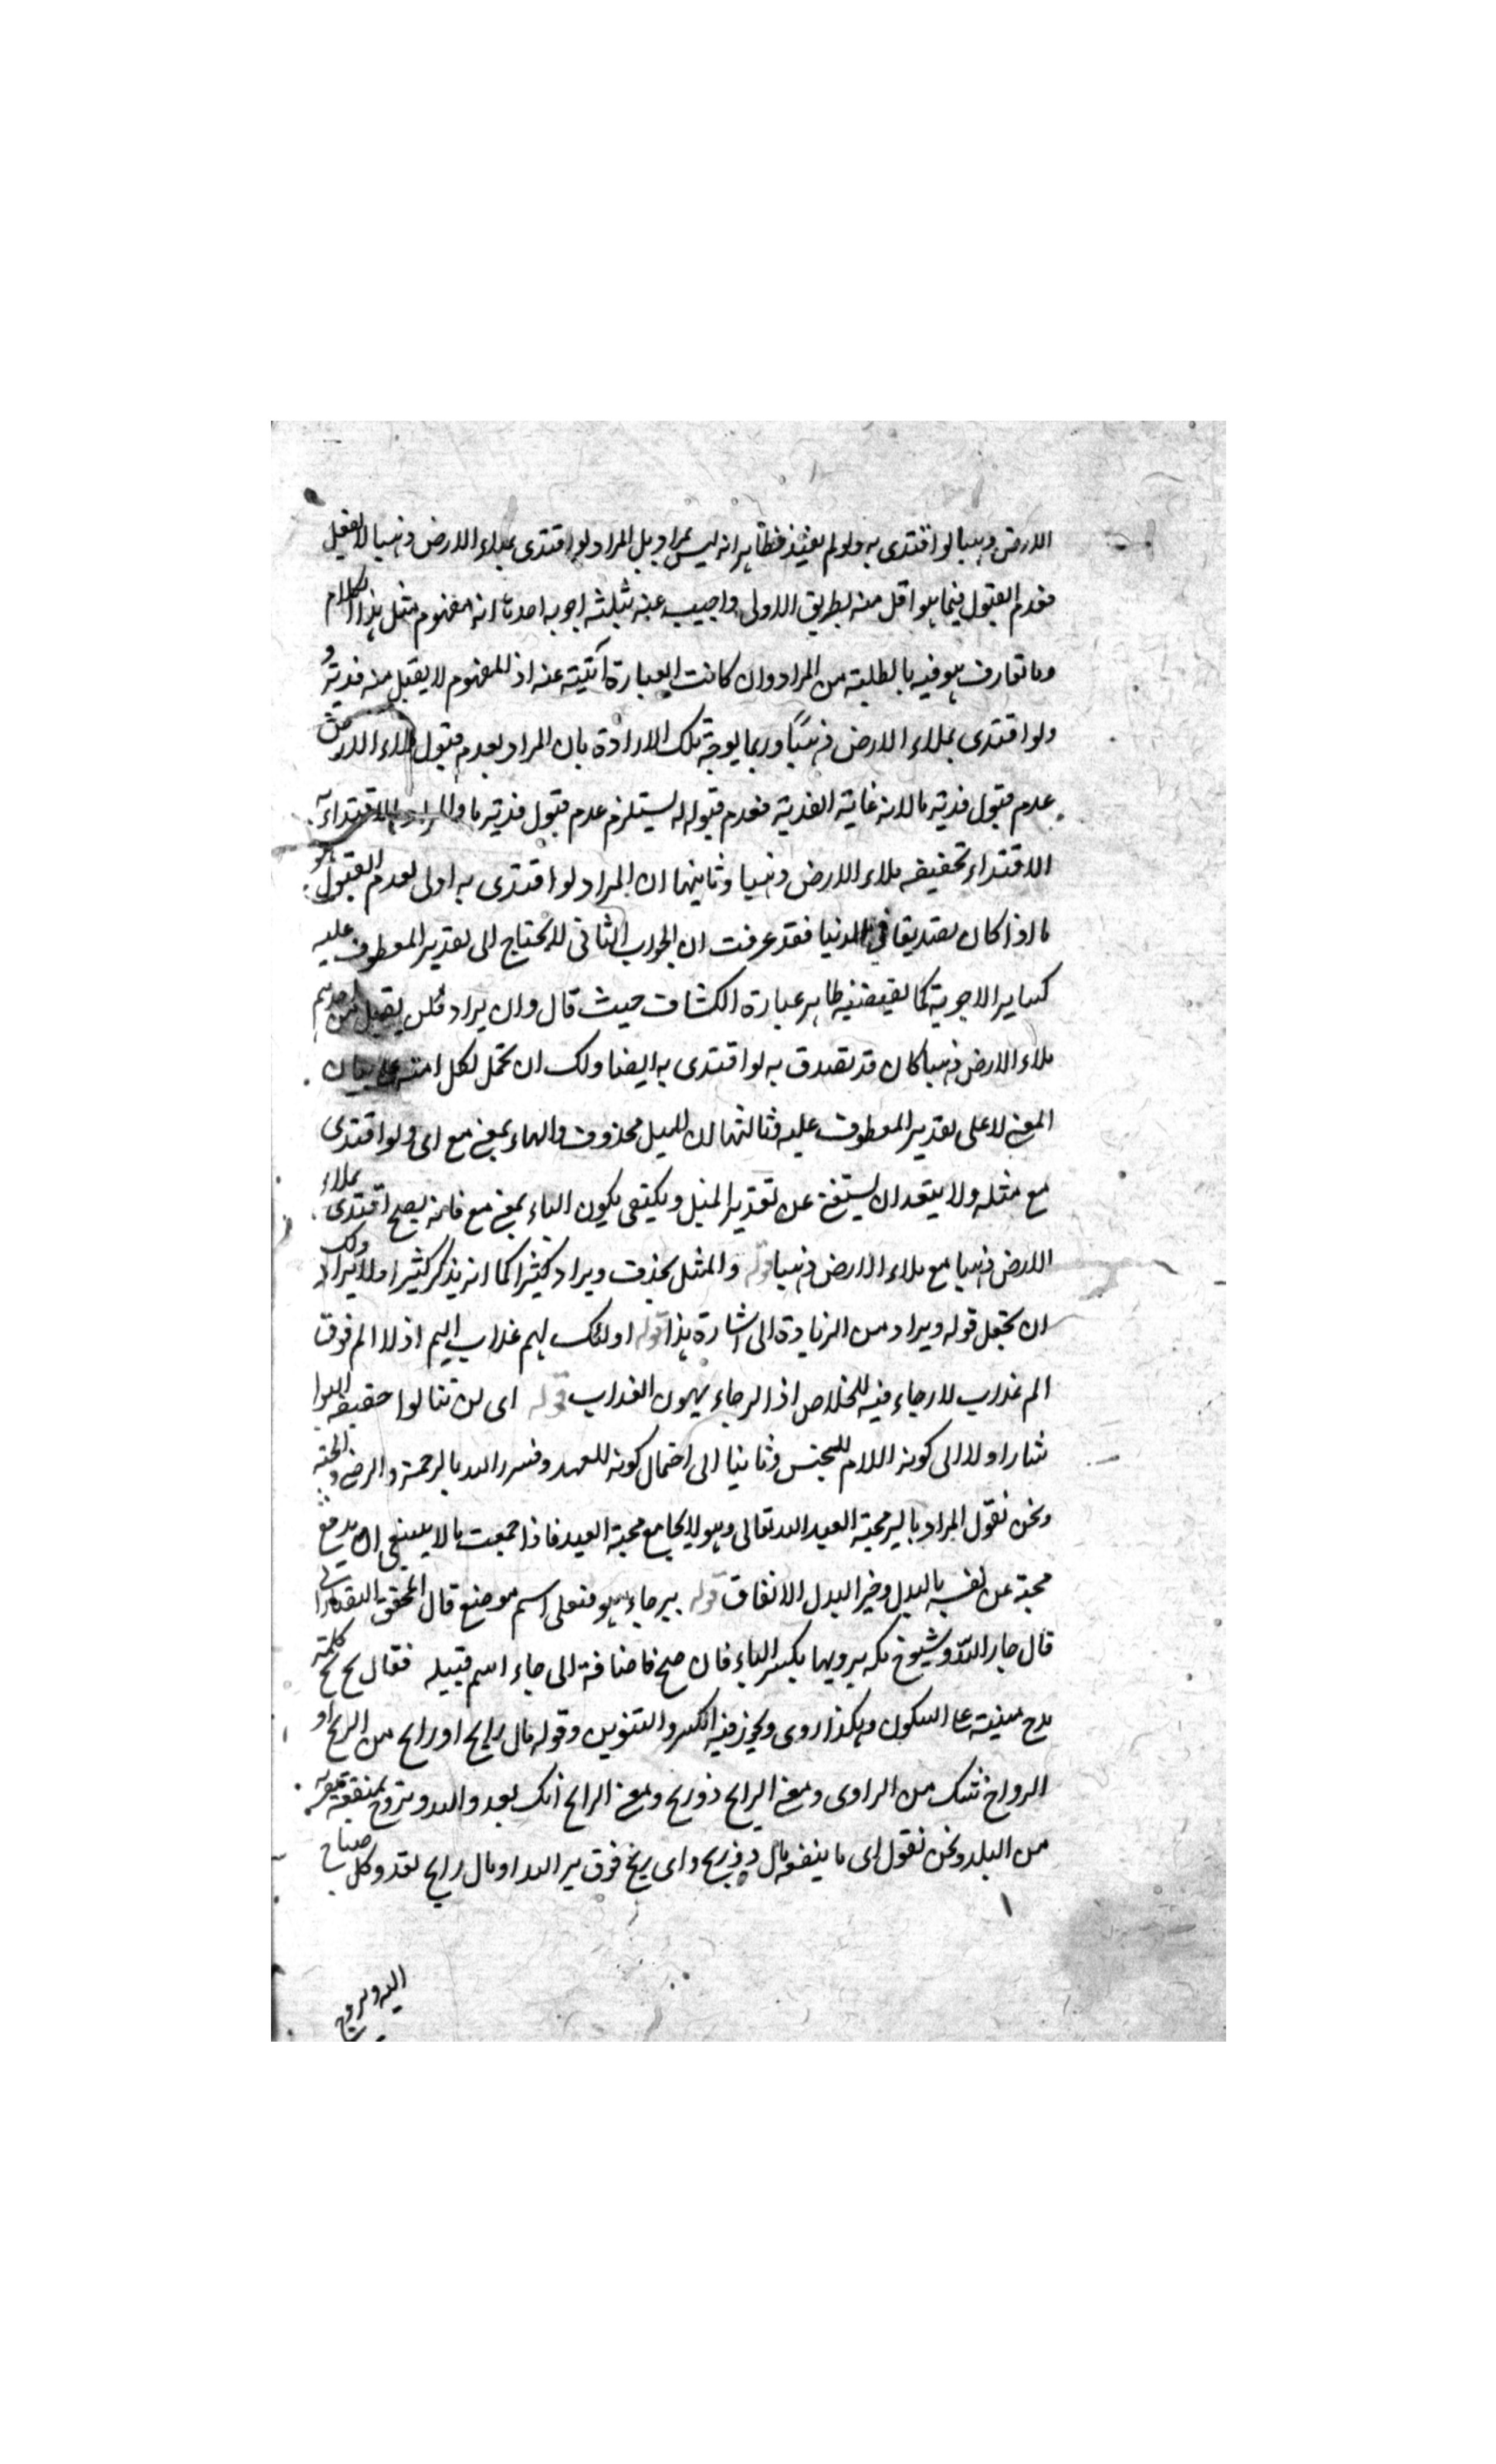 الارض ذهبا لو افتدى به ولو لم يفتد فظاهر انه ليس بمراد بل المراد لو افتدى بملاء الارض ذهبا لا يقبل
فعدم القبول فيما هو اقل منه بطريق الاولى واجيب عنه بثلثة اجوبه احدها انه مفهوم مثل هذا الكلام
وما تعارف هو فيه بالطلبة من المراد وان كانت العبارة آبية عنه اذ المفهوم لا يقبل منه فدية و
ولو افتدى بملاء الارض ذهبًا وربما يوجّه تلك الارادة بان المراد بعدم قبول ملاء الارض
عدم قبول فدية ما لانه غاية الفدية فعدم قبوله يستلزم عدم قبول فدية ما والمراد بالافتداء به
الافتداء بحقيقه ملاء الارض ذهبا وثانيهما ان المراد لو افتدى به اولى لعدم القبول
ما اذا كان تصديقا في الدنيا فقد عرفت ان الجواب الثاني لا يحتاج الى تقدير المعطوف عليه
كساير الاجوبة كما يقتضيه ظاهر عبارة الكشاف حيث قال وان يراد فلن يقبل من احدهم
ملاء الارض ذهبا كان قد تصدق به لو افتدى به ايضا ولك ان تحمل لكل بيان
المعنى لا على تقدير المعطوف عليه وثالثها ان المثل محذوف والباء بمعنى مع اى ولو افتدى
مع مثله ولا يبعد ان يستغنى عن تقدير المثل ويكتفى بكون الباء بمعنى مع فانه يصح افتدى بملاء
الارض ذهبا مع ملاء الارض ذهبا قوله والمثل يحذف ويراد كثيرا كما انه يذكر كثيرا ولا يراد ولك
ان تجعل قوله ويراد من الزيادة الى اشارة هذا قوله اولئك لهم عذاب اليم اذ لا الم فوق
الم عذاب لا رجاء فيه للخلاص اذ الرجاء يهون العذاب قوله اى لن تنالوا حقيقه البر ا
شار اولا الى كونه اللام للجنس وثانيا الى احتمال كونه للعهد وفسر بر الله بالرحمة والرضى والجنة
ونحن نقول المراد بالبر محبة العبد الله تعالى وهو لا يجامع محبة العبد فاذا جمعت ما لا ينبغي ان يدفع
محبة عن نفسه بالبدل وخير البدل الانفاق قوله بيرحاء هو فيعلى اسم موضع قال المحقق التفتازانى
قال جار الله وشيوخ مكه يرويها بكسر الباء فان صح فاضافة الى حاء اسم قبيله فقال بخ بخ كلمة
مدح مبنية على السكون وهكذا روى ويجوز فيه الكسر والتنوين وقوله مال رابح او رايح من الربح او
الرواح شك من الراوى ومعنى الرابح ذو ربح ومعنى الرايح انك تعدو اليه وتروح بمنفعته قريب
من البلد ونحن نقول اى ما ينفعه مال ذو ربح واى ربح فوق بر الله او مال رايح تغد وكل صباح
اليه وتروح